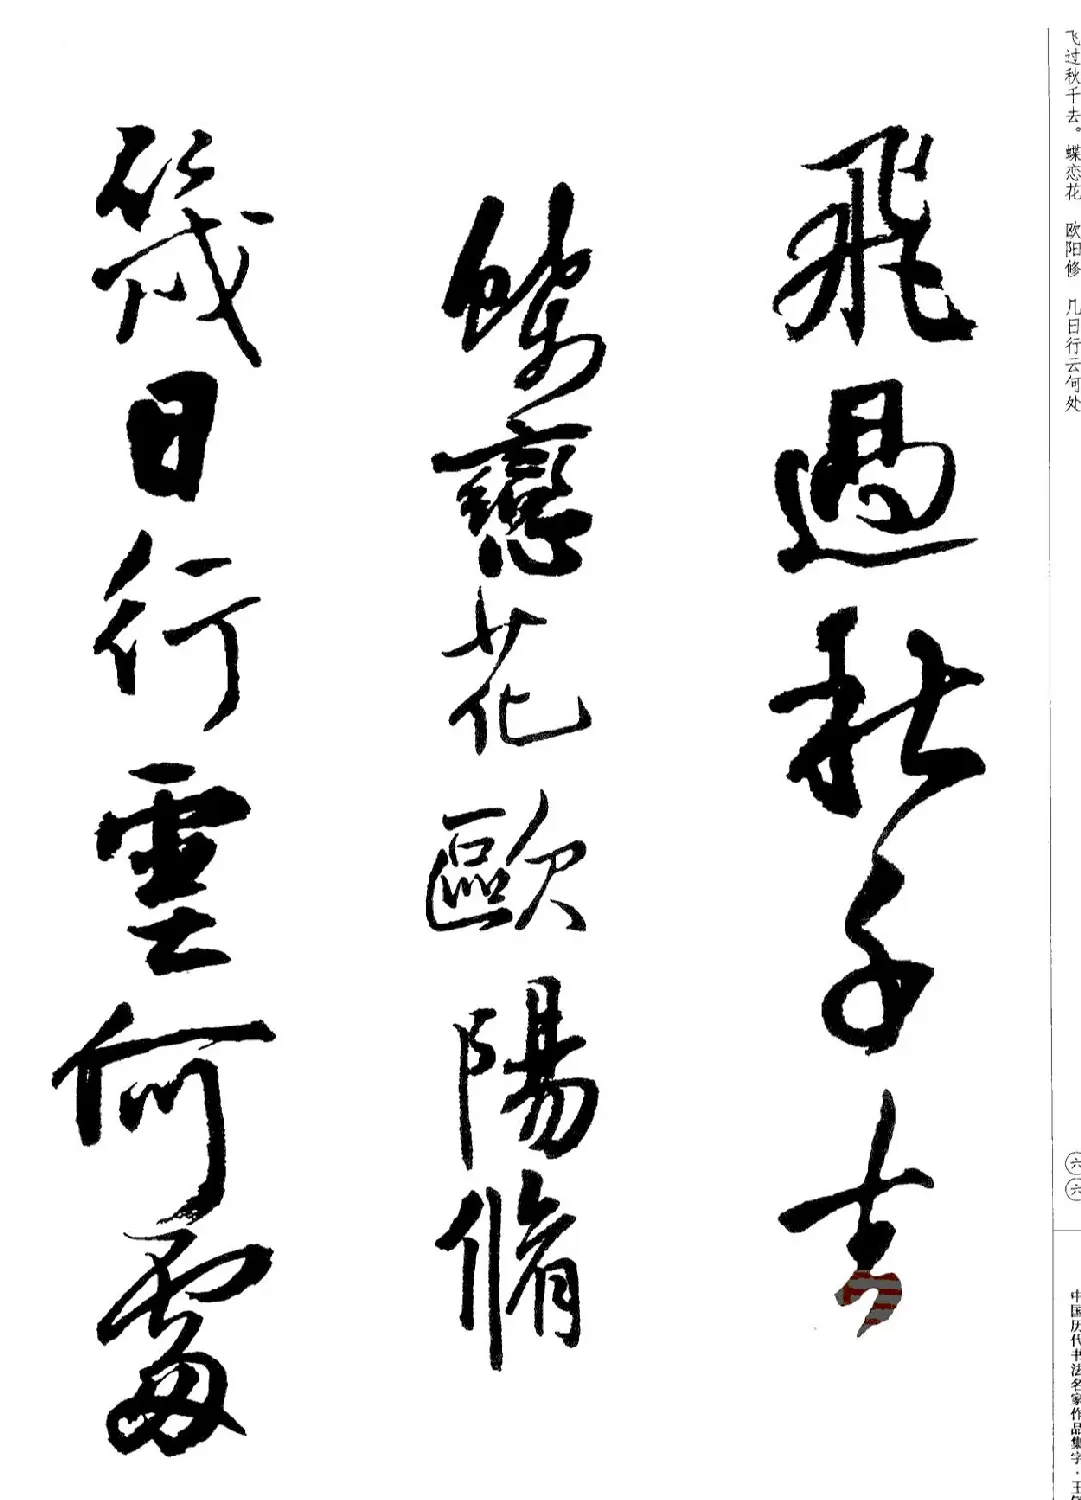 飛過秋千去
蝶戀花歐陽脩
幾日行雲何處
飞过秋千去。蝶恋花　欧阳修　几日行云何处
六六
中国历代书法名家作品集字·王